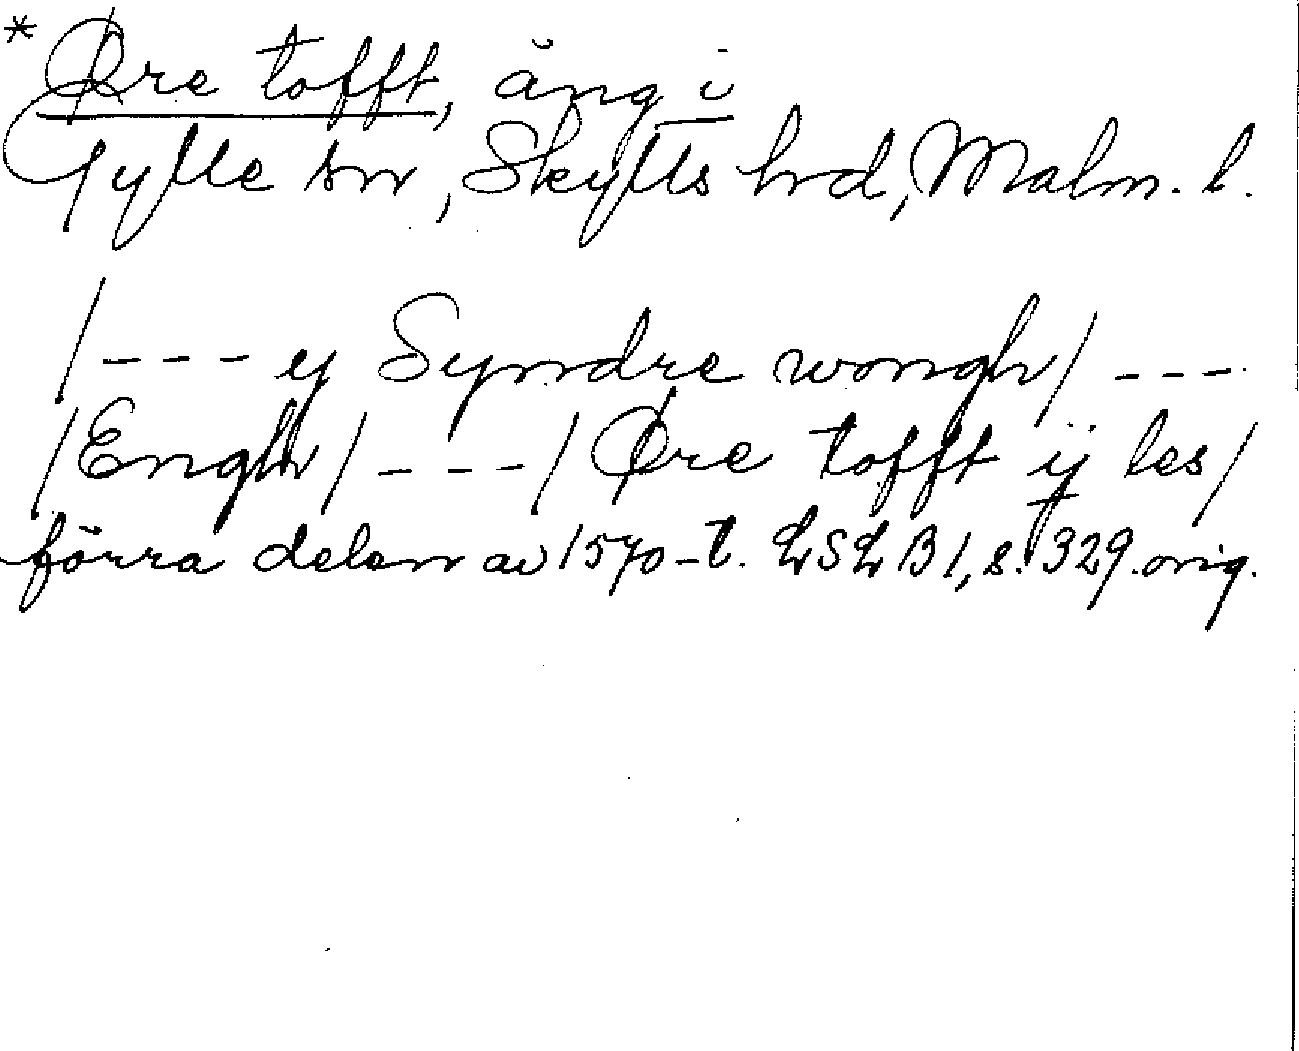 * Øre tofft, äng i
Gylle sn, Skytts hrd, Malm. l.
/--- y Syndre wongh/ ---
/Engh/ ---/ Øre tofft ij les/
förra delen av 1570-t. LSL B1, s. 329. orig.